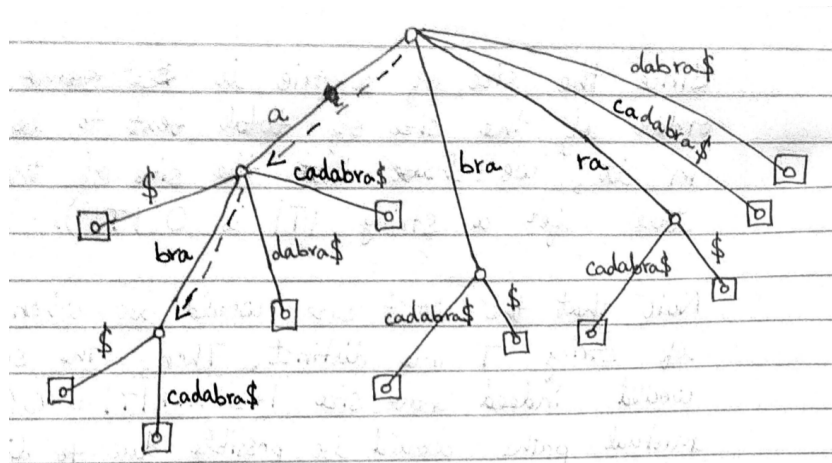 dabra$
a
cadabra$
bra
ra
cadabra$
$
bra
dabra$
cadabra$
$
cadabra$
$
$
cadabra$